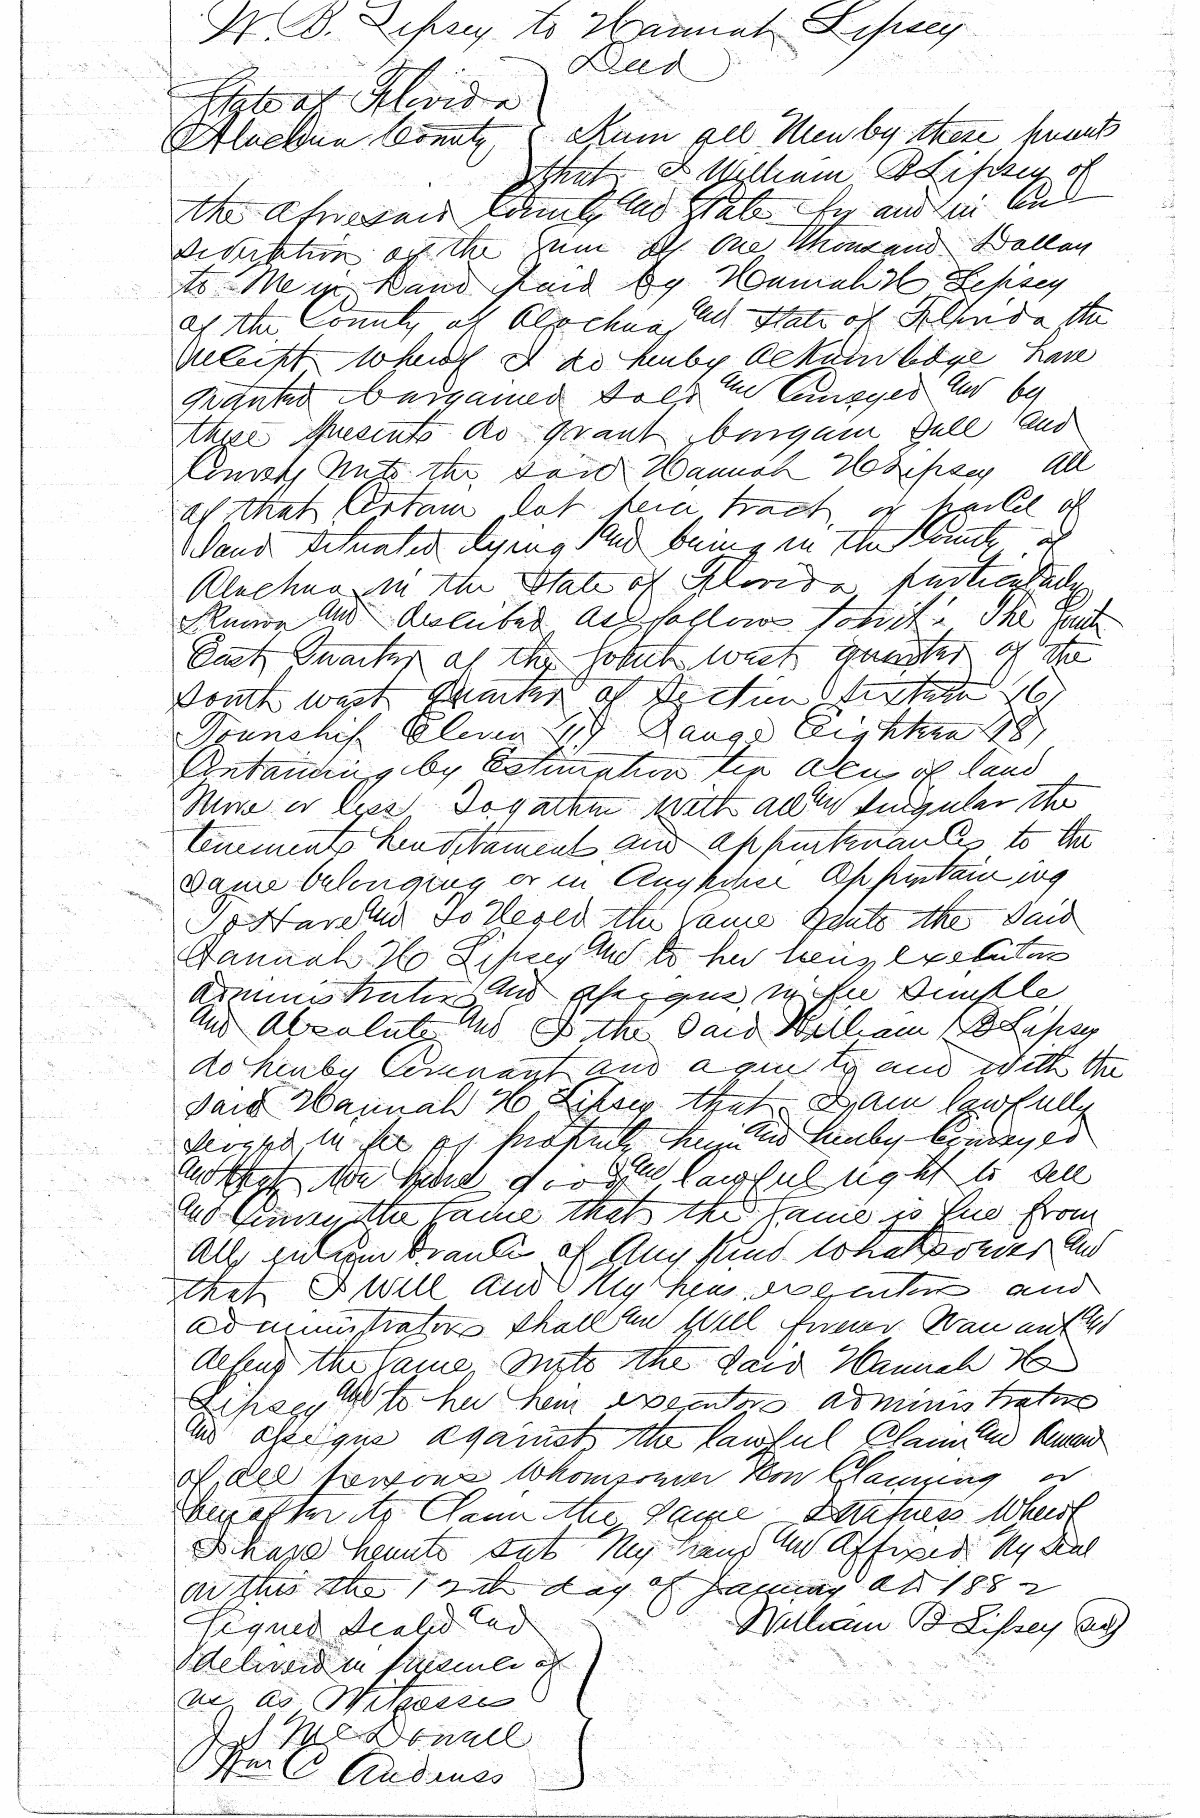 W. B. Lipsey to Hannah Lipsey
Deed
State of Florida
Alachua County } Know all Men by these presents
that I William B Lipsey of
the aforesaid County and State for and in Con
sideration of the sum of one thousand Dollars
to Me in hand paid by Hannah H Lipsey
of the County of Alachua and State of Florida the
receipt whereof I do hereby acknowledge have
granted bargained sold and Conveyed and by
these presents do grant bargain sell and
Convey unto the said Hannah H Lipsey all
of that Certain lot peice tract or parcel of
land situated lying and being in the County of
Alachua in the State of Florida particularly
Known and described as follows towit: The South
East Quarter of the South west quarter of the
South west quarter of Section Sixteen 16)
Township Eleven 11) Range Eighteen 18)
Containing by Estimation ten acres of land
More or less Togather with all and singular the
tenements hereditaments and appurtenances to the
same belonging or in Anywise Appertaining
To Have and To Hold the same unto the said
Hannah H Lipsey and to her heirs executors
administrators and assigns in fee simple
and absolute and I the said William B Lipsey
do hereby Covenant and agree to and with the
said Hannah H Lipsey that I am lawfully
seized in fee of property herein and hereby Conveyed
and that have good and lawful right to sell
and Convey the same that the same is free from
all encumbrances of any kind whatsoever and
that I will and My heirs executors and
administrators shall and will forever Warrant and
defend the same unto the said Hannah H
Lipsey and to her heirs executors administrators
and assigns against the lawful Claim and demand
of all persons whomsoever Now Claiming or
hereafter to Claim the same In witness whereof
I have hereunto set My hand and Affixed My Seal
on this the 12th day of January AD 1882
Signed Sealed and William B Lipsey (seal)
delivered in presence of
us as Witnesses
J S McDowell
Wm C Andruss